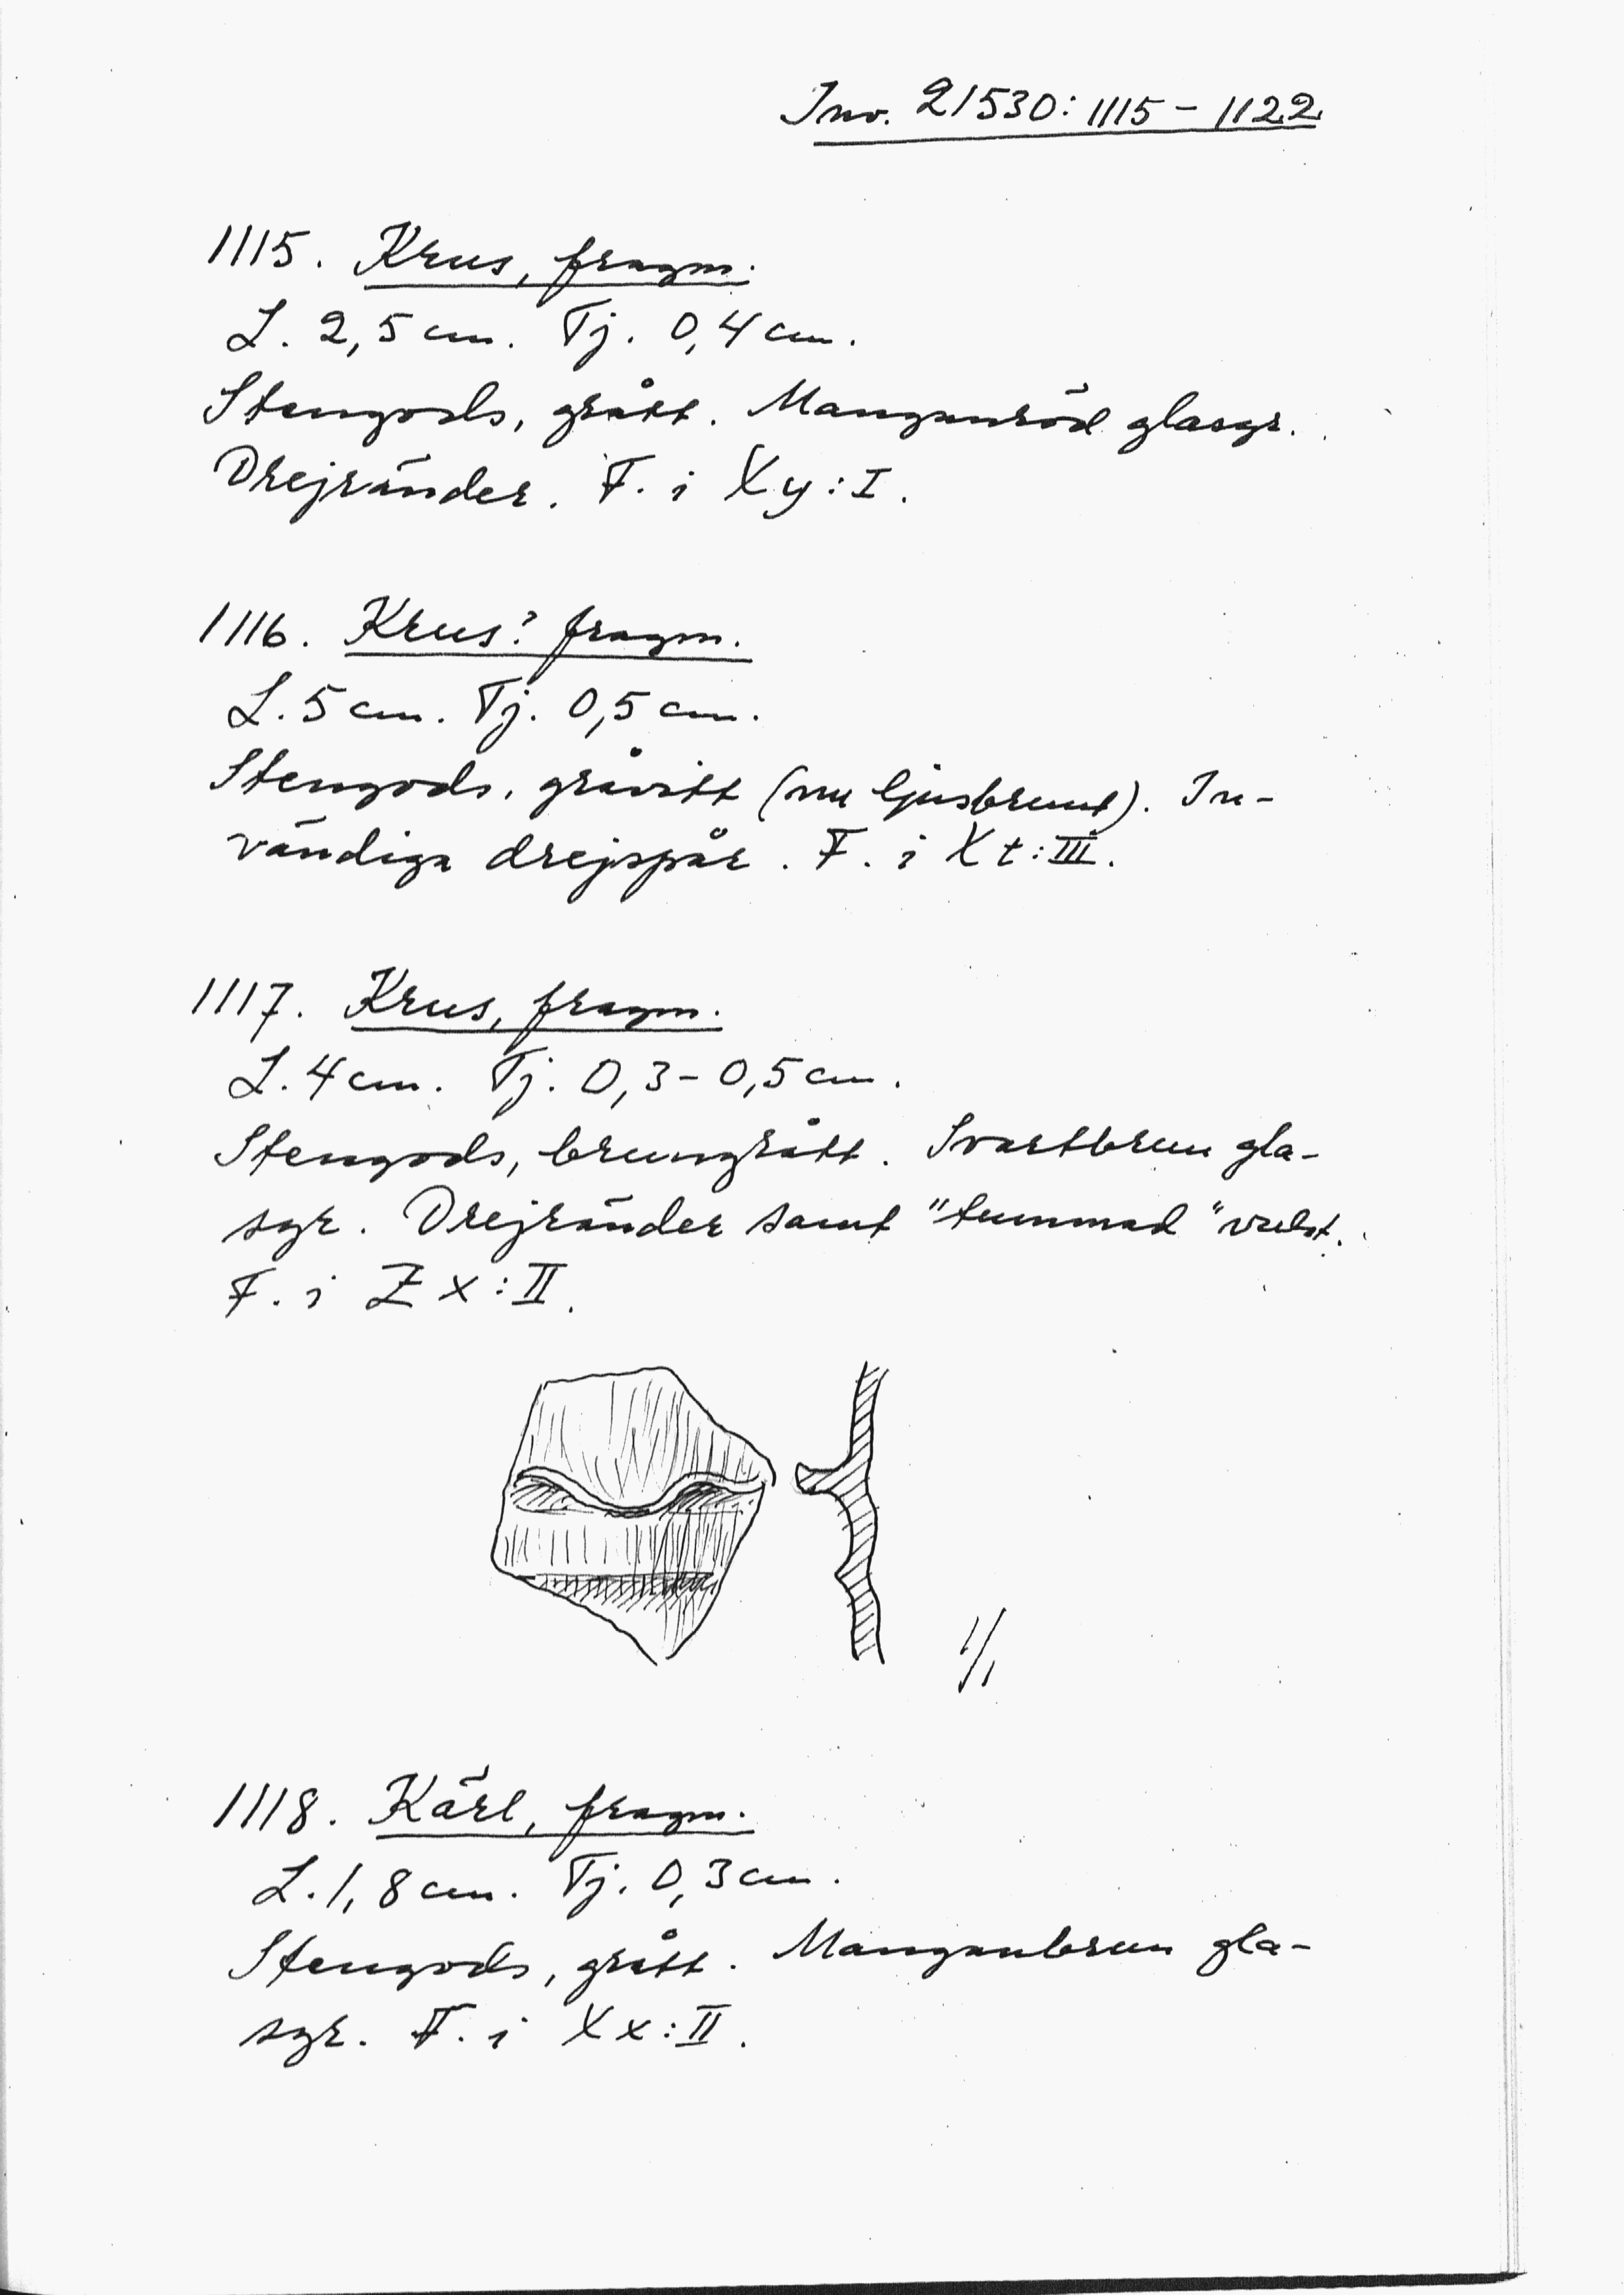 Inv. 21530:1115-1122.
1115. Krus, fragm.
L. 2,5 cm. Tj. 0,4 cm.
Stengods, grått. Manganröd glasyr.
Drejränder. F. i Xy:I.
1116. Krus? fragm.
L. 5 cm. Tj. 0,5 cm.
Stengods, gråvitt (nu ljusbrunt). In-
vändiga drejspår. F. i Xt:III.
1117. Krus, fragm.
L. 4 cm. Tj. 0,3-0,5 cm.
Stengods, brungrått. Svartbrun gla-
syr. Drejränder samt "tummad" vulst.
F. i Zx:II.
1/1
1118. Kärl, fragm.
L. 1,8 cm. Tj. 0,3 cm.
Stengods, grått. Manganbrun gla-
syr. F. i Xx:II.